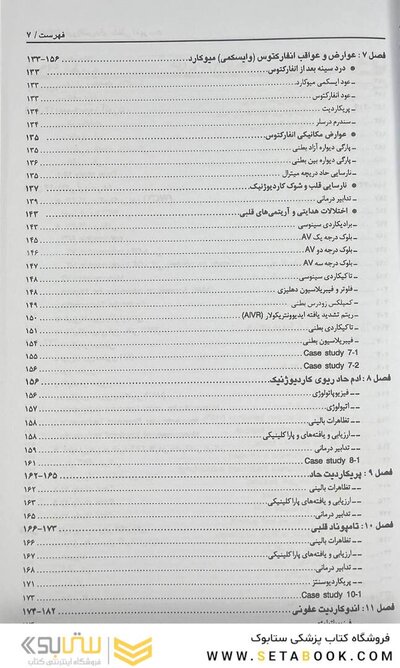 فهرست / ۷
فصل ۷ : عوارض و عواقب انفارکتوس (وایسکمی) میوکارد ۱۵۶-۱۳۳
● درد سینه بعد از انفارکتوس ۱۳۳
ـ عود ایسکمی میوکارد ۱۳۳
ـ عود انفارکتوس ۱۳۳
ـ پریکاردیت ۱۳۴
ـ سندرم درسلر ۱۳۴
● عوارض مکانیکی انفارکتوس ۱۳۵
ـ پارگی دیواره آزاد بطنی ۱۳۶
ـ پارگی دیواره بین بطنی ۱۳۶
ـ نارسایی حاد دریچه میترال ۱۳۵
● نارسایی قلب و شوک کاردیوژنیک ۱۳۷
ـ تدابیر درمانی ۱۳۹
● اختلالات هدایتی و آریتمی‌های قلبی ۱۴۳
ـ برادیکاردی سینوسی
ـ بلوک درجه یک AV ۱۴۵
ـ بلوک درجه دو AV ۱۴۶
ـ بلوک درجه سه AV ۱۴۷
ـ تاکیکاردی سینوسی ۱۴۸
ـ فلوتر و فیبریلاسیون دهلیزی ۱۴۸
ـ کمپلکس زودرس بطنی ۱۴۹
ـ ریتم تشدید یافته ایدیوونتریکولار (AIVR) ۱۵۰
ـ تاکیکاردی بطنی ۱۵۱
ـ فیبریلاسیون بطنی
Case study 7-1 ۱۵۵
Case study 7-2 ۱۵۶
فصل ۸ : ادم حاد ریوی کاردیوژنیک ۱۵۶
ــ فیزیوپاتولوژی ۱۵۶
ــ اتیولوژی ۱۵۷
ــ تظاهرات بالینی ۱۵۸
ــ ارزیابی و یافته‌های و پاراکلینیکی ۱۵۸
ــ تدابیر درمانی ۱۵۹
Case study 8-1 ۱۶۱
فصل ۹ : پریکاردیت حاد ۱۶۵-۱۶۲
ــ تظاهرات بالینی ۱۶۲
ــ ارزیابی و یافته‌های پاراکلینیکی ۱۶۳
ــ تدابیر درمانی ۱۶۵
فصل ۱۰ : تامپوناد قلبی ۱۷۳-۱۶۶
ــ تظاهرات بالینی ۱۶۶
ــ ارزیابی و یافته‌های پاراکلینیکی ۱۶۷
ــ تدابیر درمانی ۱۶۸
ــ پریکاردیوسنتز ۱۷۱
Case study 10-1 ۱۷۳
فصل ۱۱ : اندوکاردیت عفونی ۱۸۲-۱۷۴
فروشگاه کتاب پزشکی ستابوک
WWW.SETABOOK.COM
ستابوک
فروشگاه اینترنتی کتاب